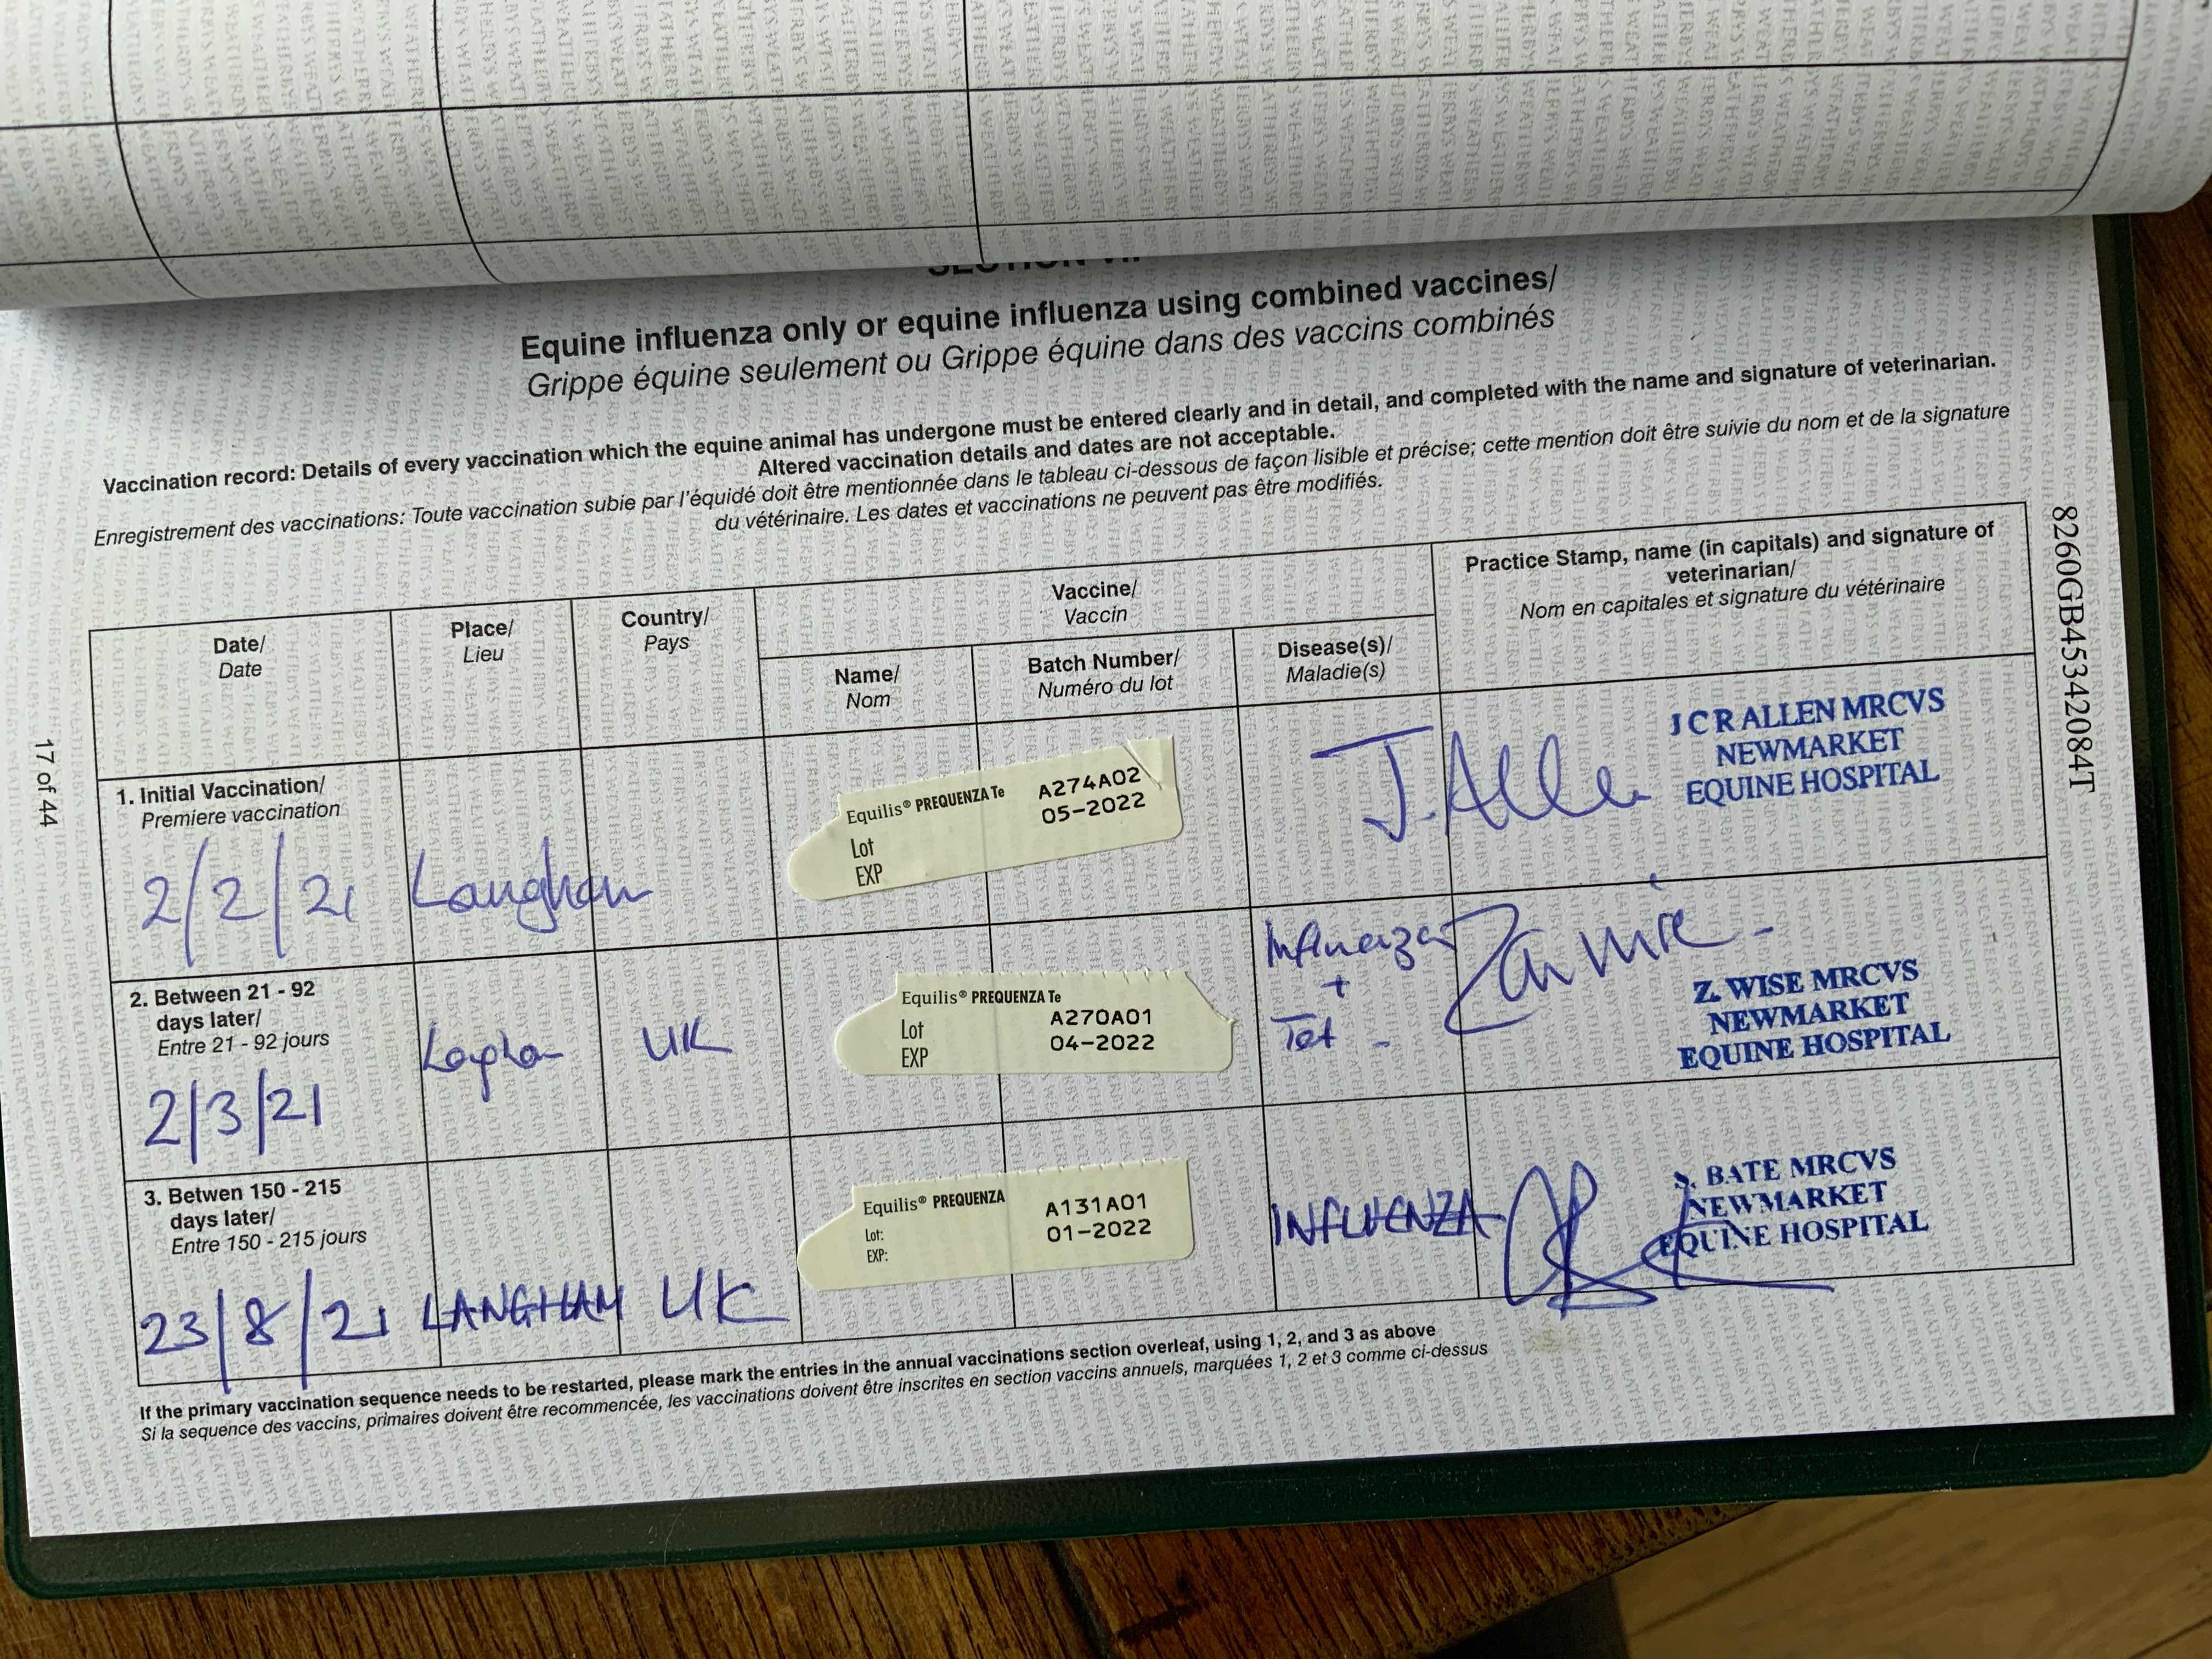 Equine influenza only or equine influenza using combined vaccines/
Grippe équine seulement ou Grippe équine dans des vaccins combinés
Vaccination record: Details of every vaccination which the equine animal has undergone must be entered clearly and in detail, and completed with the name and signature of veterinarian.
Altered vaccination details and dates are not acceptable.
Enregistrement des vaccinations: Toute vaccination subie par l'équidé doit être mentionnée dans le tableau ci-dessous de façon lisible et précise; cette mention doit être suivie du nom et de la signature
du vétérinaire. Les dates et vaccinations ne peuvent pas être modifiés.
Date/
Date
Place/
Lieu
Country/
Pays
Vaccine/
Vaccin
Name/
Nom
Batch Number/
Numéro du lot
Disease(s)/
Maladie(s)
Practice Stamp, name (in capitals) and signature of
veterinarian/
Nom en capitales et signature du vétérinaire
1. Initial Vaccination/
Premiere vaccination
2/2/21
Langham
Equilis® PREQUENZA Te
Lot
EXP
A274A02
05-2022
J. Allen
J C R ALLEN MRCVS
NEWMARKET
EQUINE HOSPITAL
2. Between 21 - 92
days later/
Entre 21 - 92 jours
2/3/21
UK
Equilis® PREQUENZA Te
Lot
EXP
A270A01
04-2022
Influenza
+
Tet
Z. WISE MRCVS
NEWMARKET
EQUINE HOSPITAL
3. Betwen 150 - 215
days later/
Entre 150 - 215 jours
23/8/21
LANGHAM
UK
Equilis® PREQUENZA
Lot:
EXP:
A131A01
01-2022
INFLUENZA
BATE MRCVS
NEWMARKET
EQUINE HOSPITAL
If the primary vaccination sequence needs to be restarted, please mark the entries in the annual vaccinations section overleaf, using 1, 2, and 3 as above
Si la sequence des vaccins, primaires doivent être recommencée, les vaccinations doivent être inscrites en section vaccins annuels, marquées 1, 2 et 3 comme ci-dessus
17 of 44
8260GB45342084T